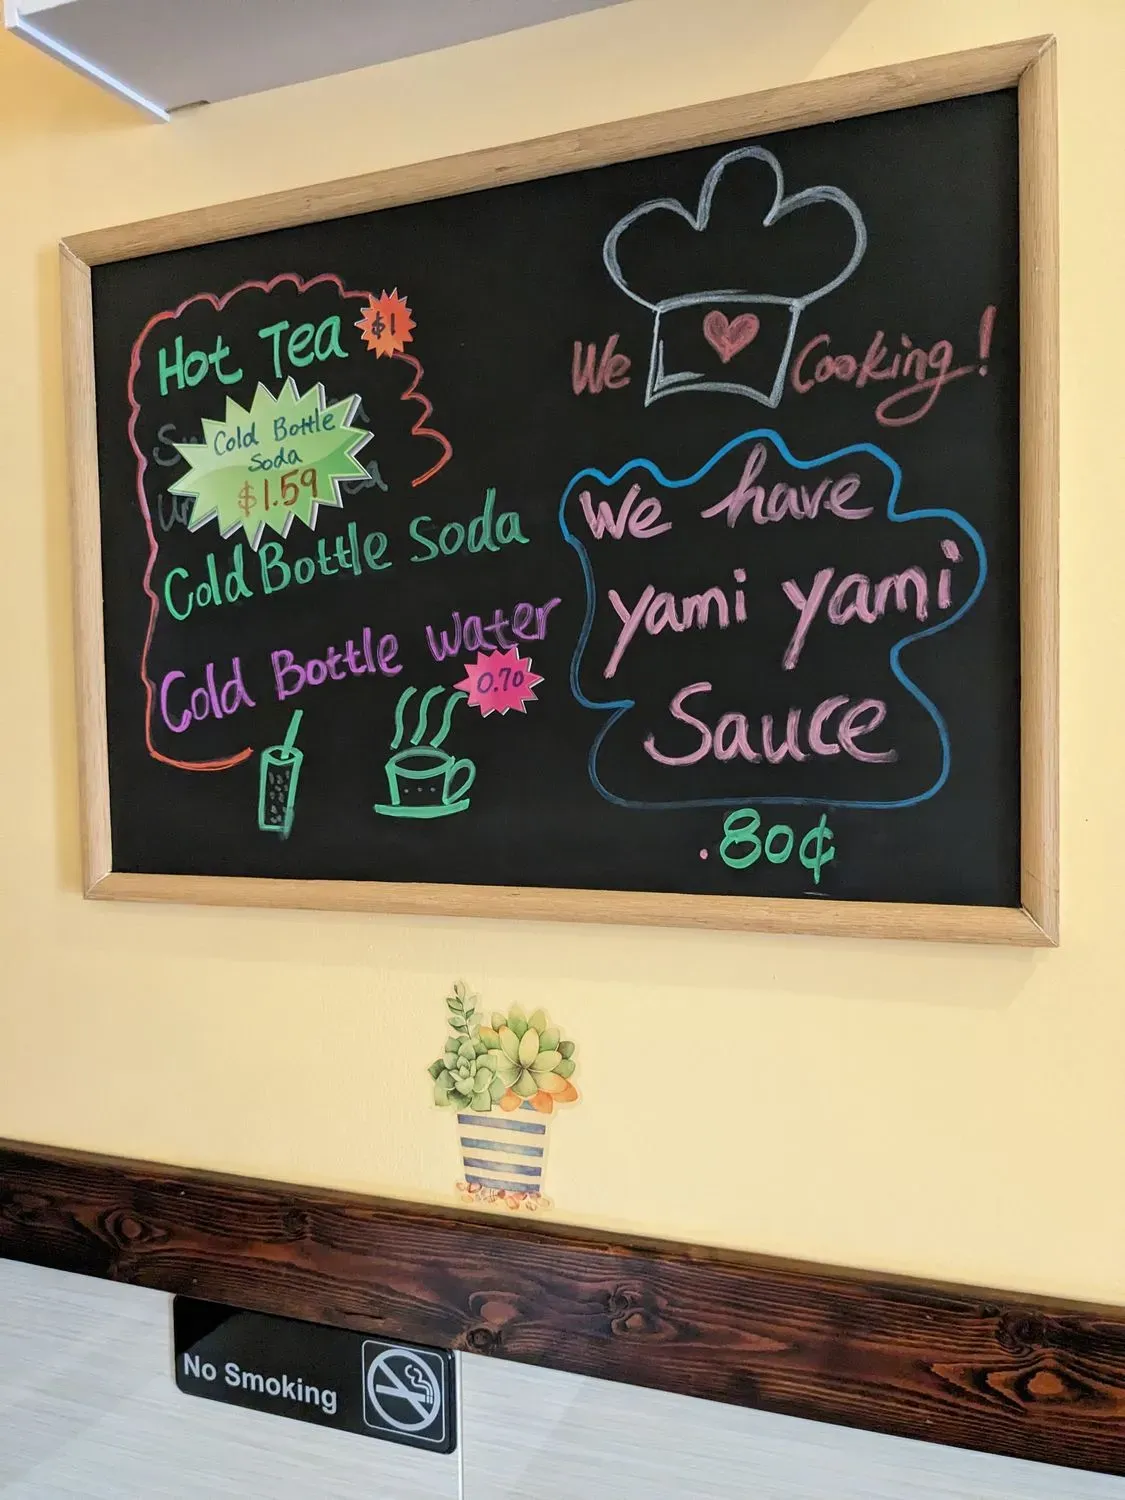 Hot Tea $1
Cold Bottle
Soda
$1.59
Cold Bottle Soda
Cold Bottle Water
0.70
We Cooking!
We have
yami yami
Sauce
.80¢
No Smoking